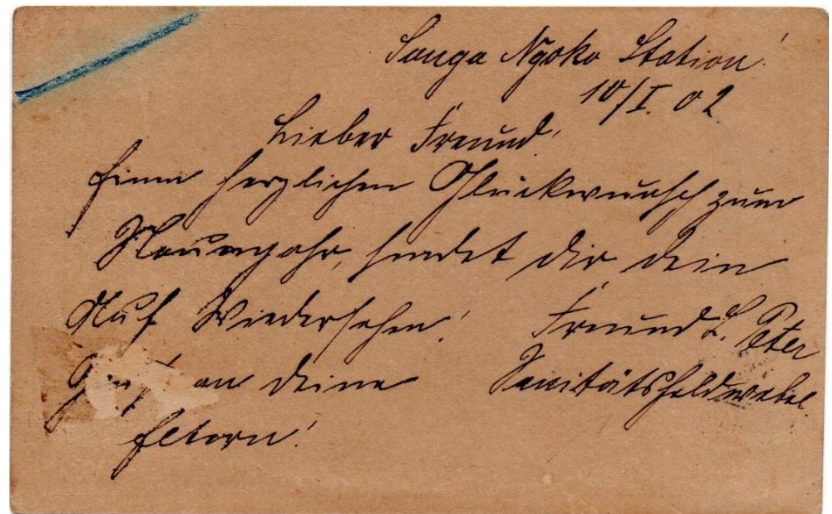 Sanga Ngoko Station!
10/I. 02
Lieber Freund!
Einen herzlichen Glückwunsch zum
Neuenjahr, sendet dir dein
Auf Wiedersehen! Freund L. Peter
an deine Sanitätsfeldwebel.
Eltern!